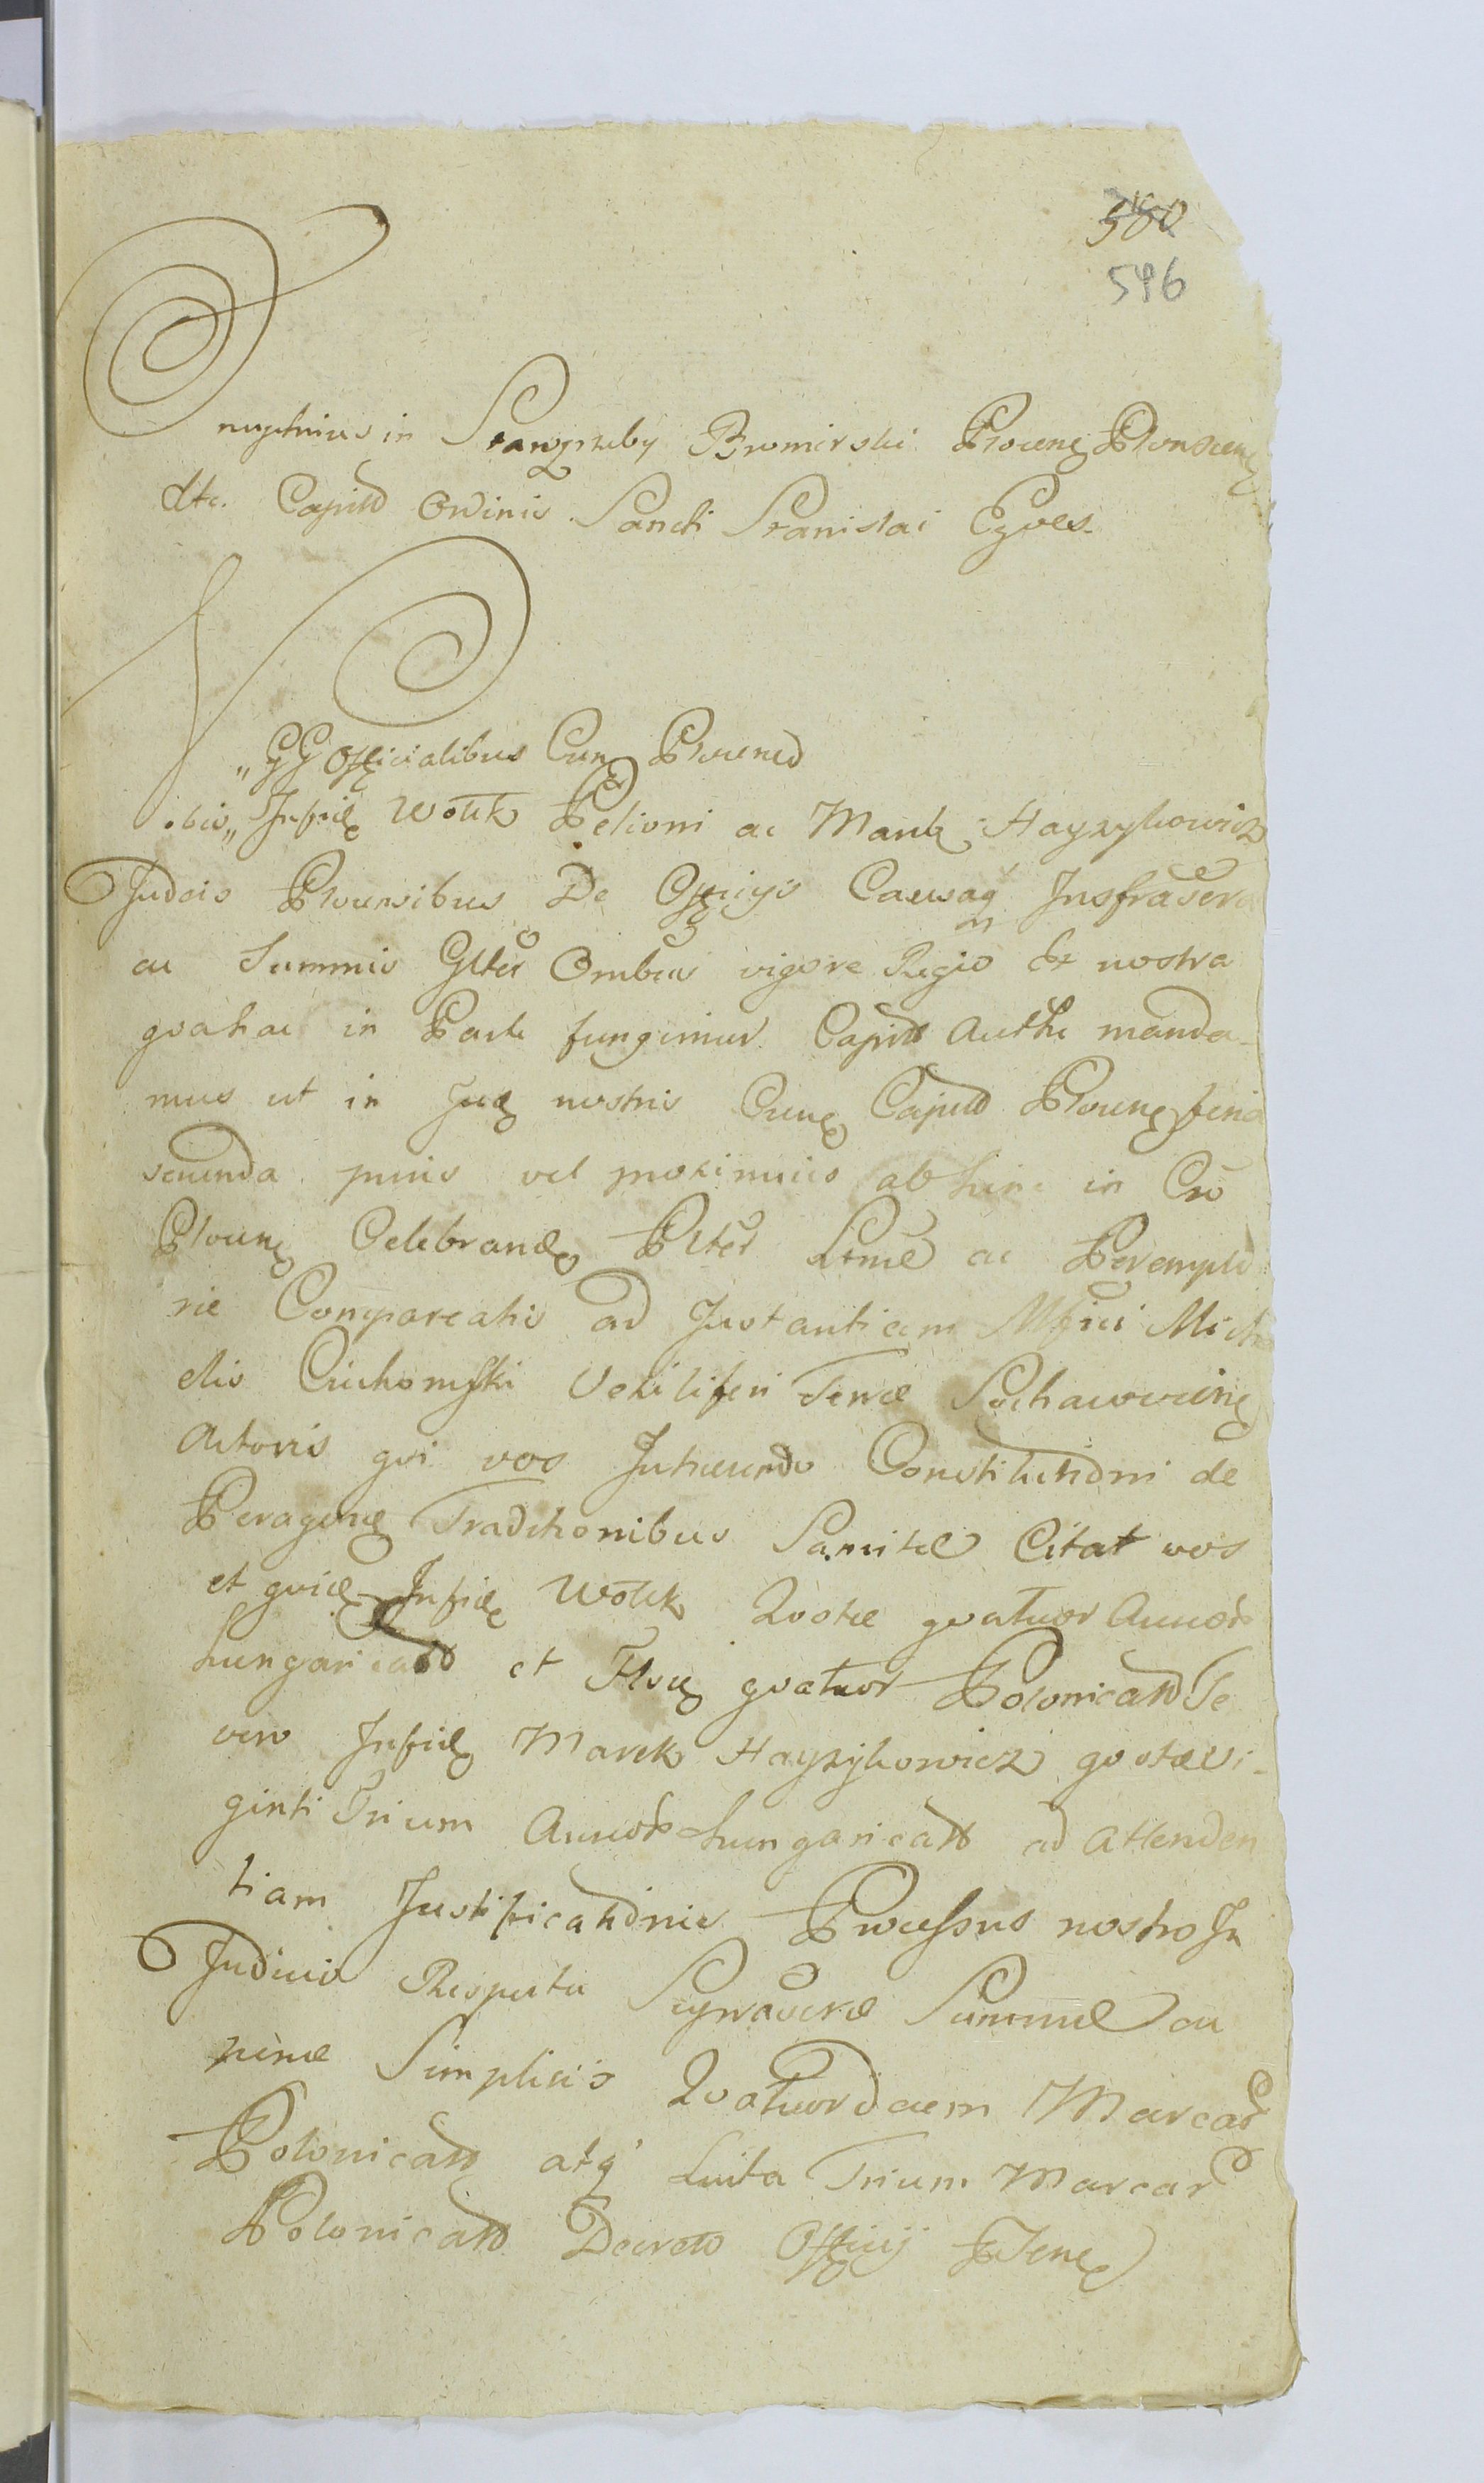 580
596
Onuphrius in Starogrzeby Bromirski Plocen Plonscen
etc. Capitd Ordinis Sancti Stanislai Eques.
„GG Officialibus Cun Plocened
Nobis„ Infid Wolek Pelioni ac Mark Hayzykowicz
Judeis Plocensibus De Officijs Causaq Infrascr
ac Summis Glter Ombus vigore Regio et nostra
qva hac in Parte fungimur Capitt Autthe manda-
mus ut in Jud nostris Cune Capitd Plocen feria
secunda primis vel proximius ab hinc in Cro
Plocen Celebrand Plter Ltme ac Perempto
rie Compareatis ad Instantiam Mfici Mich
elis Cichomski Vexiliferi Terræ Sochaccucien
Actoris qvi vos Inhærendo Constitutioni de
Peragend Traditionibus Sancitæ Citat vos
et qvid Infid Wolek Qvotæ qvatuor Aureor
hungaricall et Flor qvatuor Polonicall Te
vero Infid Marek Hayzykowicz qvotæ Vi-
ginti Trium Aureor hungaricall ad Attenden
tiam Justificationis Processus nostro In
Judicio Respectu Suprascræ Summæ ac
pænæ Simplicis Qvatuordecem Marcar
Polonicall atq Luita Trium Marcar
Polonicall Decreto Officij Ptene